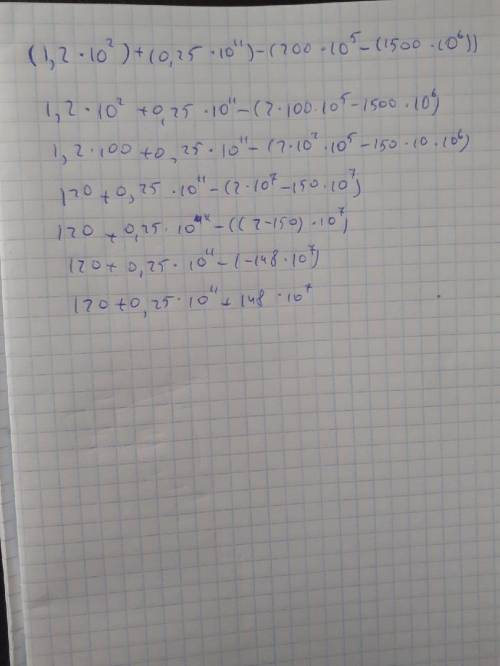 (1,2 · 10²) + (0,25 · 10¹¹) - (200 · 10⁵ - (1500 · 10⁶))
1,2 · 10² + 0,25 · 10¹¹ - (2 · 100 · 10⁵ - 1500 · 10⁶)
1,2 · 100 + 0,25 · 10¹¹ - (2 · 10² · 10⁵ - 150 · 10 · 10⁶)
120 + 0,25 · 10¹¹ - (2 · 10⁷ - 150 · 10⁷)
120 + 0,25 · 10¹¹ - ((2 - 150) · 10⁷)
120 + 0,25 · 10¹¹ - (-148 · 10⁷)
120 + 0,25 · 10¹¹ + 148 · 10⁷